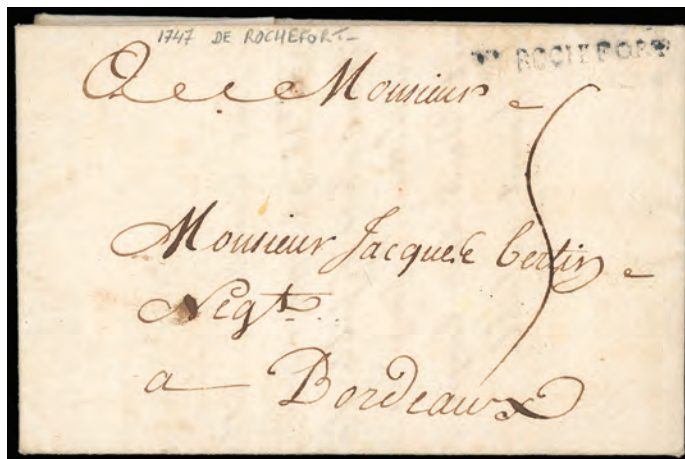 1747 DE ROCHEFORT
DE ROCHEFORT
A Monsieur
Monsieur Jacques bertin
Negt
a Bordeaux